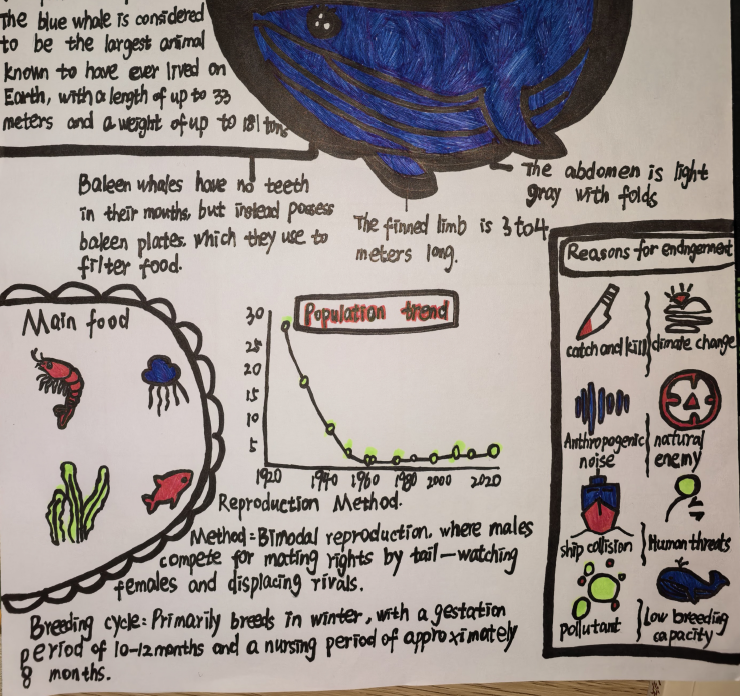 The blue whale is considered
to be the largest animal
known to have ever lived on
Earth, with a length of up to 33
meters and a weight of up to 181 tons
Baleen whales have no teeth
in their mouths, but instead possess
baleen plates. which they use to
filter food.
The finned limb is 3 to 4
meters long.
The abdomen is light
gray with folds
Reasons for endngerment
catch and kill
climate change
Anthropogenic
noise
natural
enemy
ship collision
Human threats
pollutant
Low breeding
capacity
Main food
Population trend
30
25
20
15
10
5
1920 1940 1960 1980 2000 2020
Reproduction Method.
Method: Bimodal reproduction, where males
compete for mating rights by tail-watching
females and displacing rivals.
Breeding cycle: Primarily breeds in winter, with a gestation
period of 10-12 months and a nursing period of approximately
8 months.